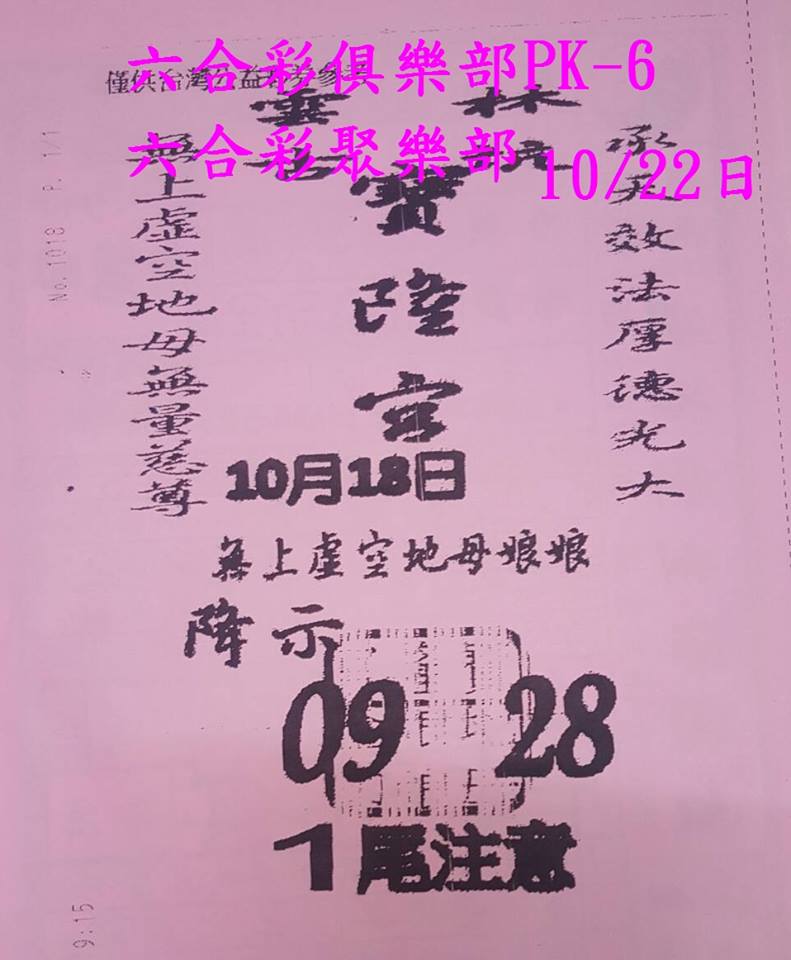 六合彩俱樂部PK-6
僅供台灣公益彩券參考
雲林
六合彩聚樂部
10/22日
寶隆宮
承天效法厚德光大
無上虛空地母無量慈尊
No.1018 P. 1/1
10月18日
無上虛空地母娘娘
降示
09 28
1尾注意
9:15